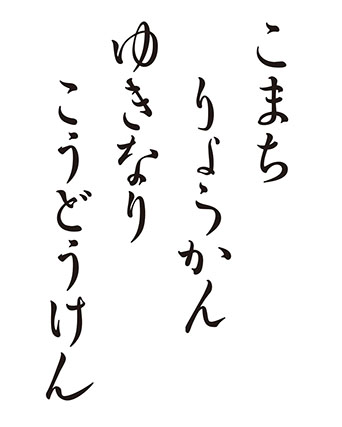 こまち
りょうかん
ゆきなり
こうどうけん